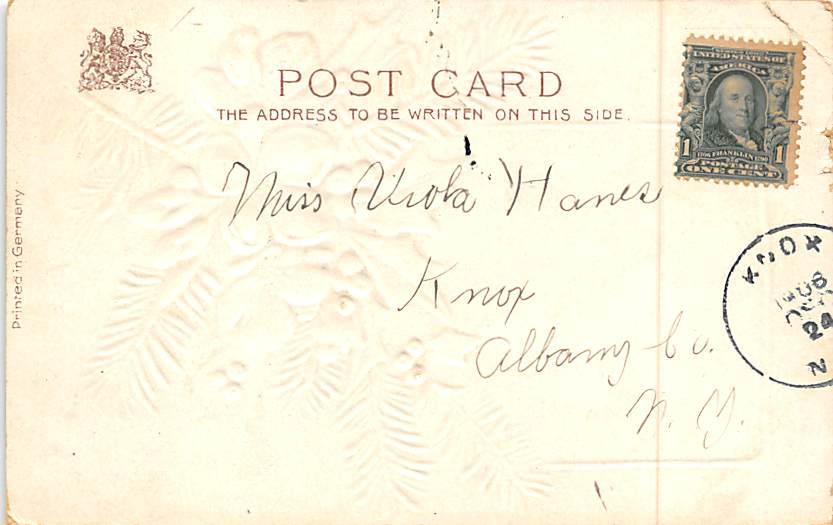 POST CARD
THE ADDRESS TO BE WRITTEN ON THIS SIDE.
UNITED STATES OF
AMERICA
1706 FRANKLIN 1790
1 1
POSTAGE
ONE CENT
Miss Viola Hanes
Knox
Albany Co.
N. Y.
KNOX
24
N
Printed in Germany.